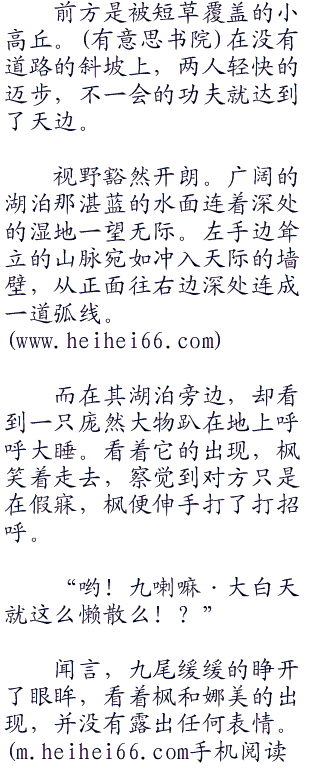 前方是被短草覆盖的小
高丘。(有意思书院)在没有
道路的斜坡上，两人轻快的
迈步，不一会的功夫就达到
了天边。
视野豁然开朗。广阔的
湖泊那湛蓝的水面连着深处
的湿地一望无际。左手边耸
立的山脉宛如冲入天际的墙
壁，从正面往右边深处连成
一道弧线。
(www.heihei66.com)
而在其湖泊旁边，却看
到一只庞然大物趴在地上呼
呼大睡。看着它的出现，枫
笑着走去，察觉到对方只是
在假寐，枫便伸手打了打招
呼。
“哟！九喇嘛·大白天
就这么懒散么！？”
闻言，九尾缓缓的睁开
了眼眸，看着枫和娜美的出
现，并没有露出任何表情。
(m.heihei66.com手机阅读